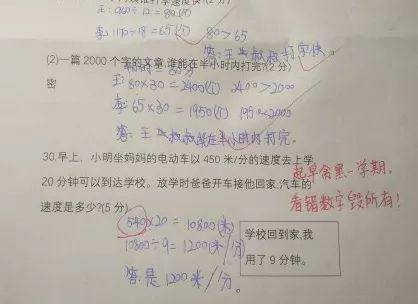 王:960÷12=80(个)
李:1170÷18=65(个) 80>65
答:王叔叔打字快。
(2)一篇 2000 个字的文章,谁能在半小时内打完?(2 分)
密
王:80×30=2400(个) 2400>2000
李:65×30=1950(个) 1950<2000
答:王叔叔能在半小时内打完。
30.早上,小明坐妈妈的电动车以 450 米/分的速度去上学,
20 分钟可以到达学校。放学时爸爸开车接他回家,汽车的
速度是多少?(5 分)
起早贪黑一学期,
看错数字毁所有!
540×20=10800(米)
10800÷9=1200(米/分)
答:是1200米/分。
学校回到家,我
用了 9 分钟。